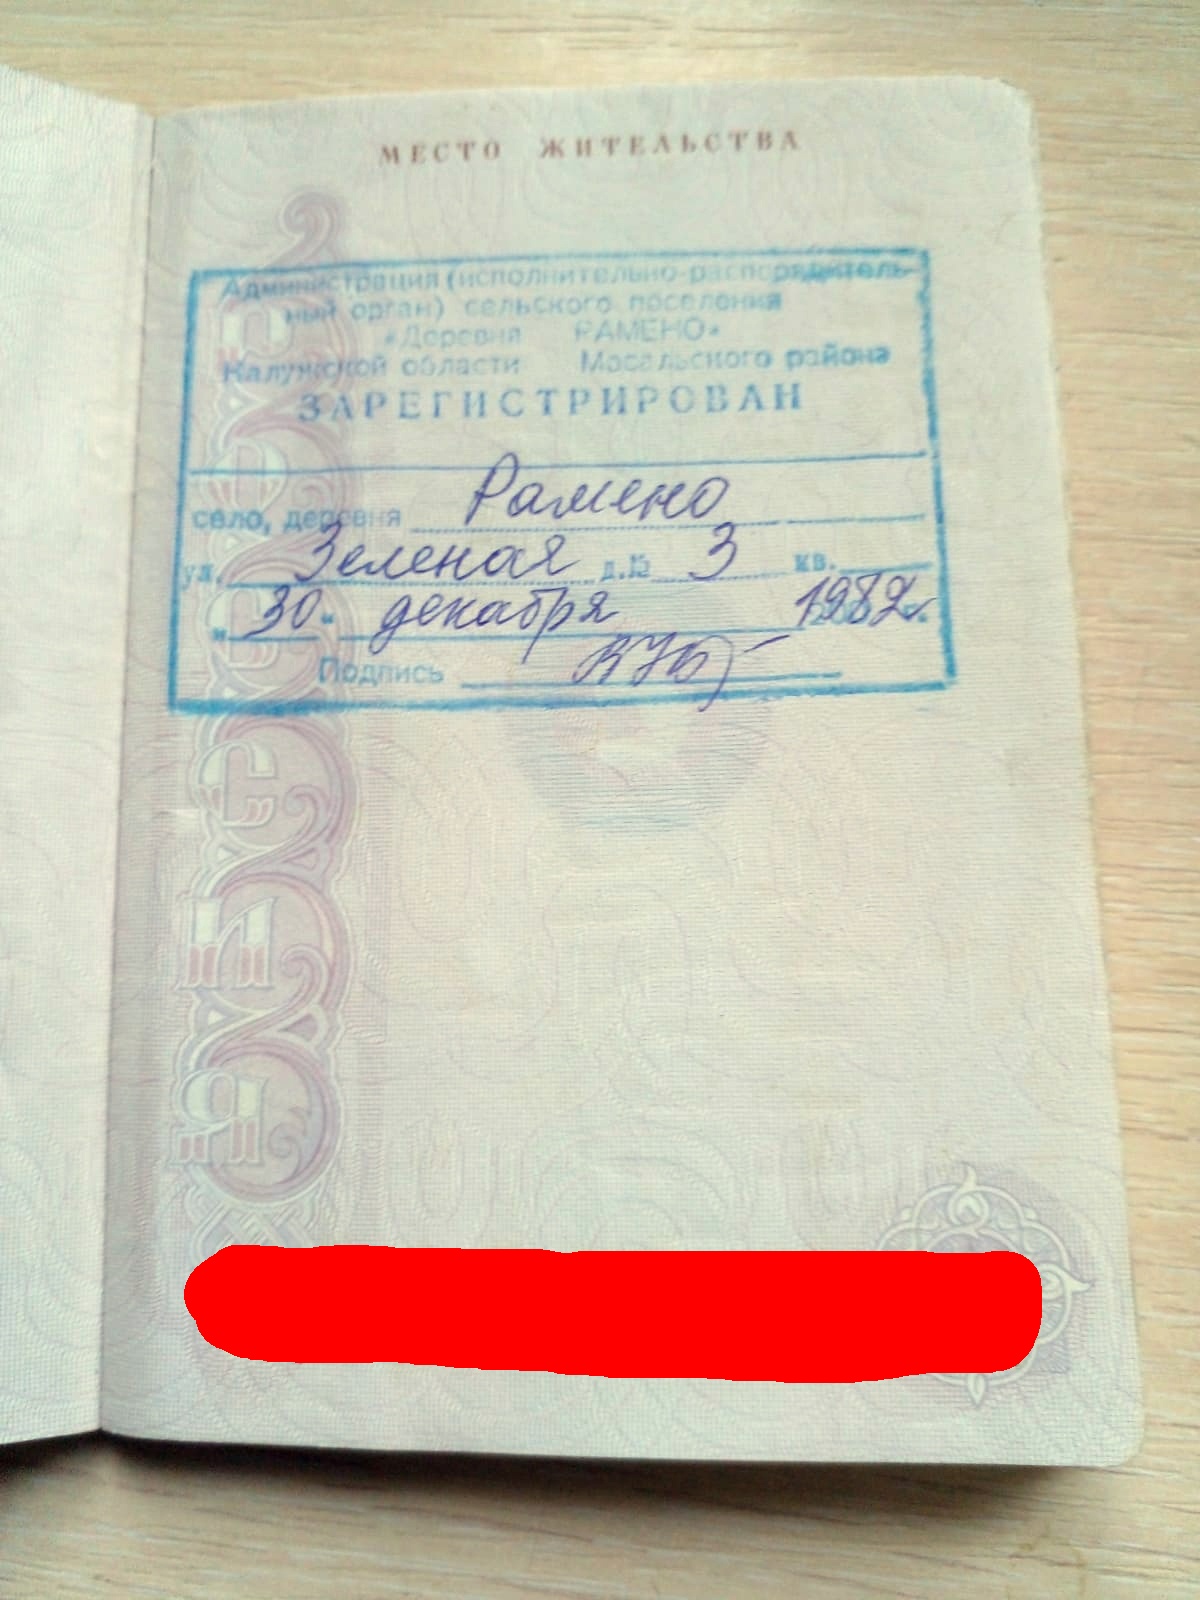 МЕСТО ЖИТЕЛЬСТВА
Администрация (исполнительно-распорядитель-
ный орган) сельского поселения
«Деревня РАМЕНО»
Калужской области Мосальского района
ЗАРЕГИСТРИРОВАН
село, деревня Рамено
ул. Зеленая д.№ 3 кв.
"30" декабря 1982г.
Подпись